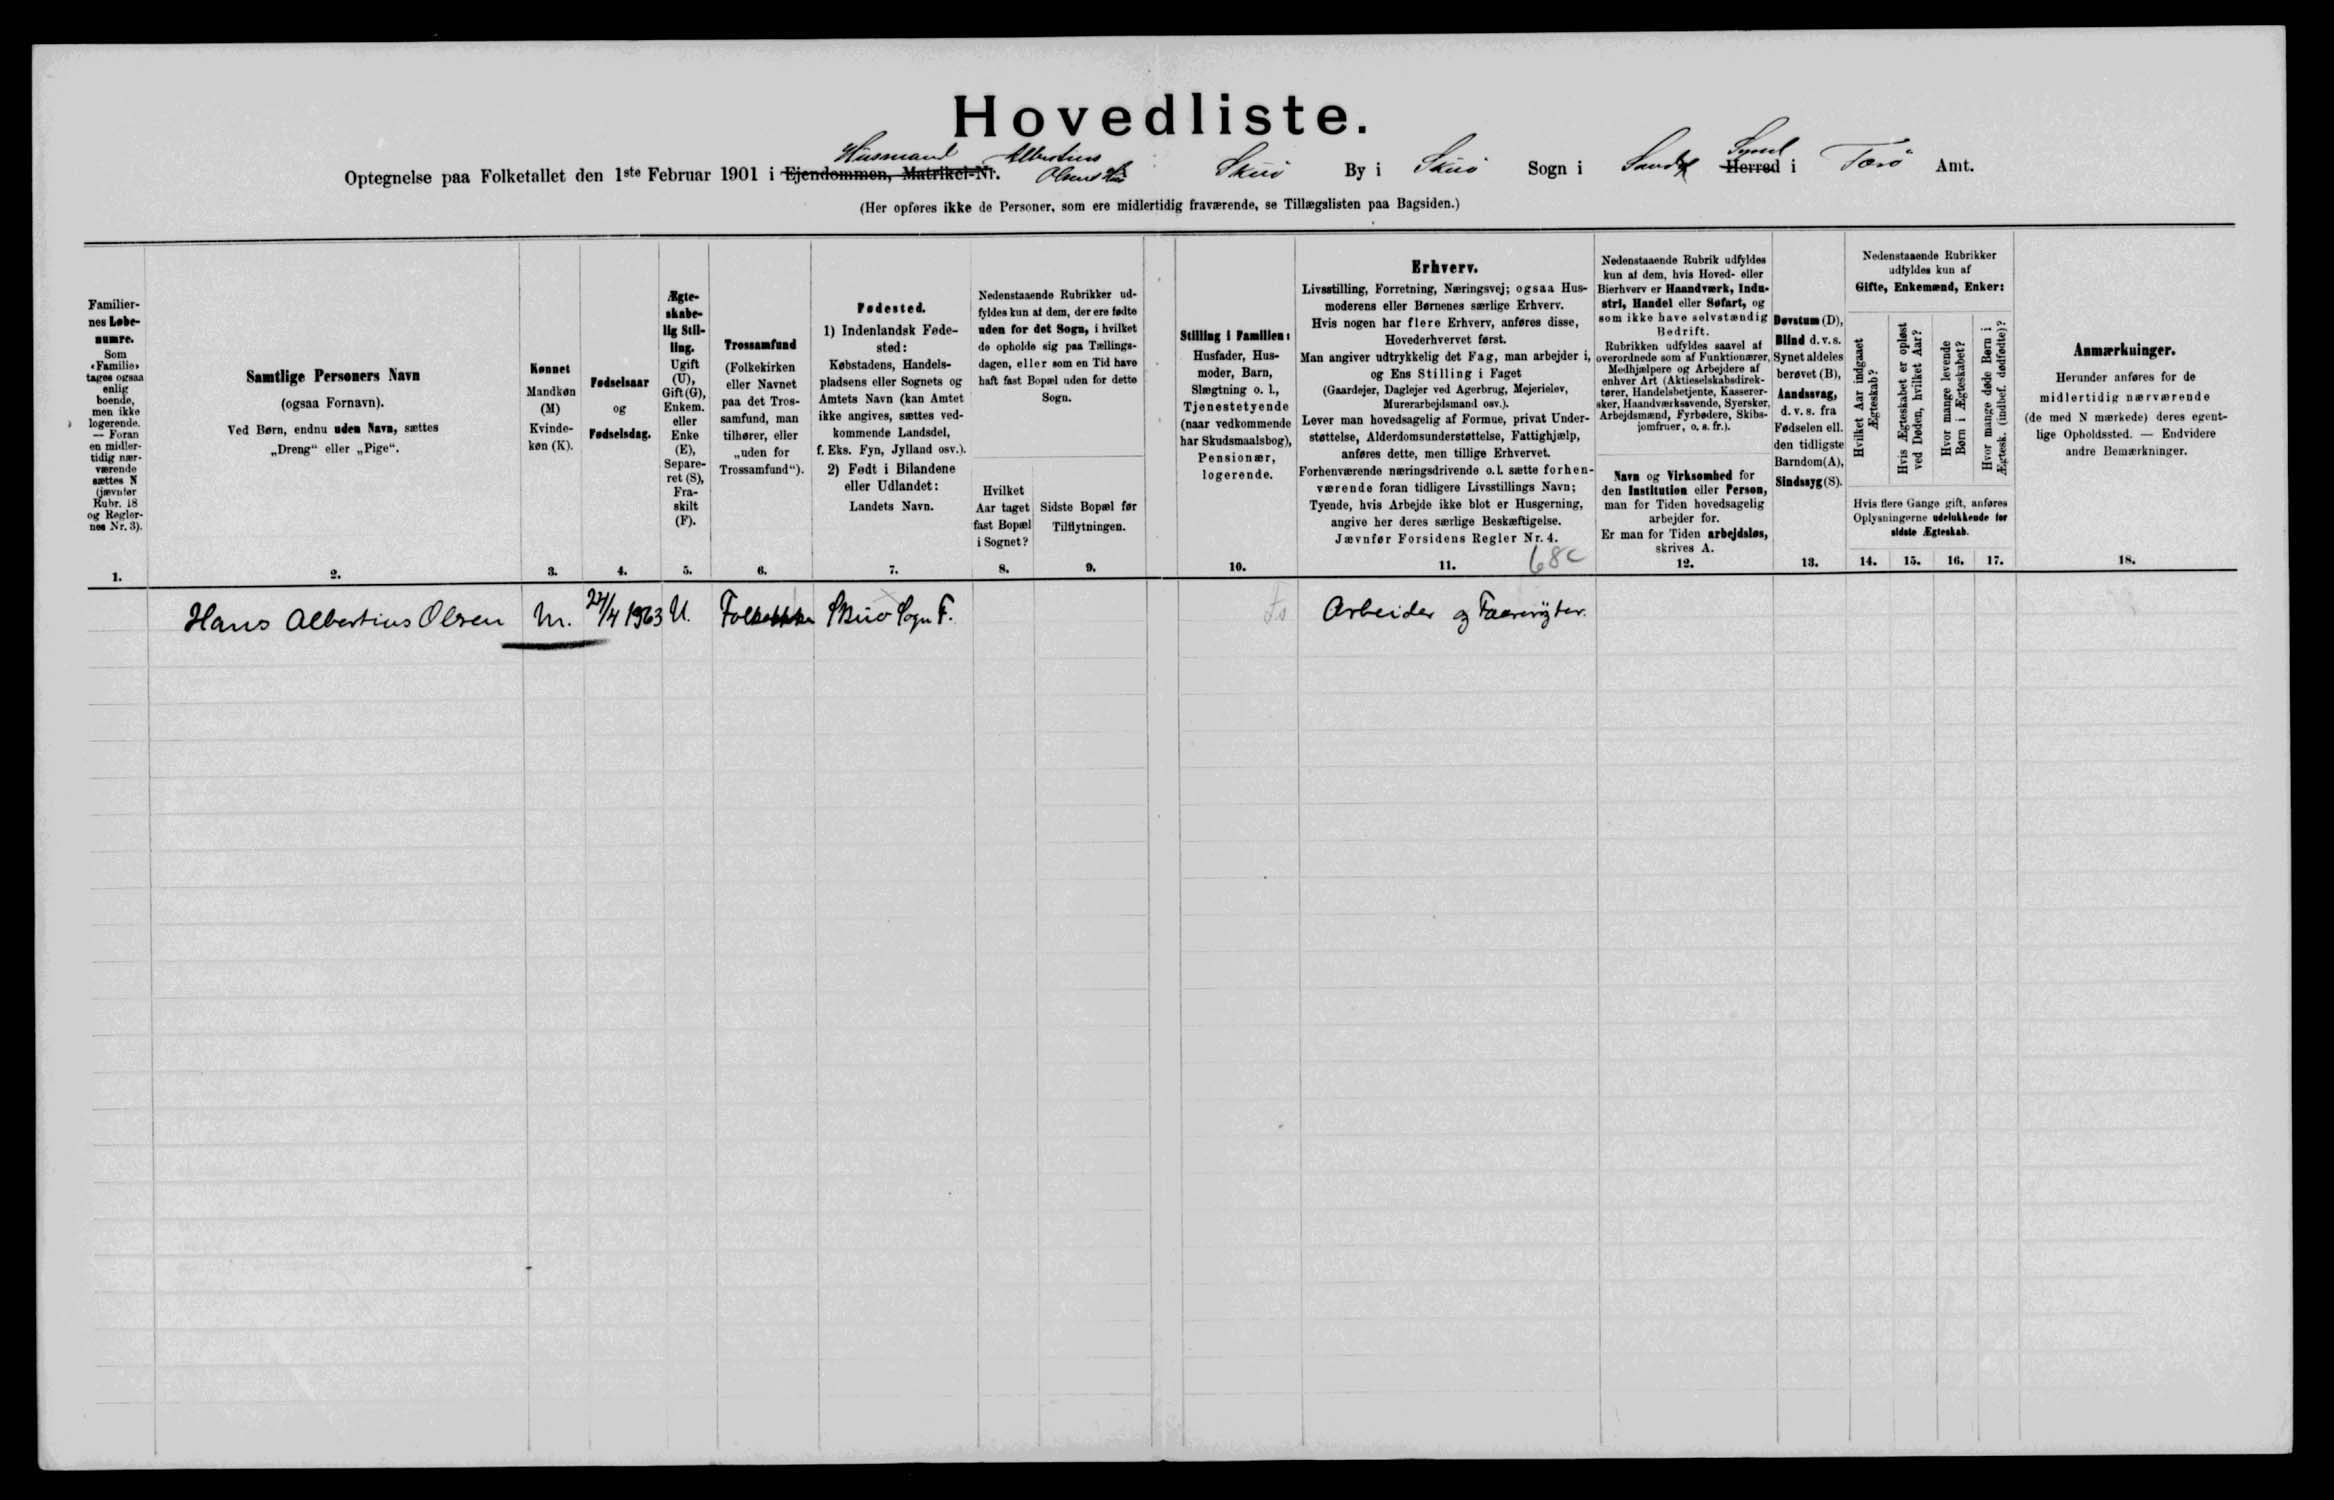 Hovedliste.
Husmand Albertius
Optegnelse paa Folketallet den 1ste Februar 1901 i Ejendommen, Matrikel-Nr. Olsens Hus Skuø By i Skuø Sogn i Sandø Syssel Herred i Færø Amt.
(Her opføres ikke de Personer, som ere midlertidig fraværende, se Tillægslisten paa Bagsiden.)
Familier-
nes Løbe-
numre.
Som
«Familie»
tages ogsaa
enlig
boende,
men ikke
logerende.
— Foran
en midler-
tidig nær-
værende
sættes N
(jævnfør
Rubr. 18
og Regler-
nes Nr. 3).
1.
Samtlige Personers Navn
(ogsaa Fornavn).
Ved Børn, endnu uden Navn, sættes
„Dreng“ eller „Pige“.
2.
Kønnet
Mandkøn
(M)
Kvinde-
køn (K).
3.
Fødselsaar
og
Fødselsdag.
4.
Ægte-
skabe-
lig Stil-
ling.
Ugift
(U),
Gift (G),
Enkem.
eller
Enke
(E),
Separe-
ret (S),
Fra-
skilt
(F).
5.
Trossamfund
(Folkekirken
eller Navnet
paa det Tros-
samfund, man
tilhører, eller
„uden for
Trossamfund“).
6.
Fødested.
1) Indenlandsk Føde-
sted:
Købstadens, Handels-
pladsens eller Sognets og
Amtets Navn (kan Amtet
ikke angives, sættes ved-
kommende Landsdel,
f. Eks. Fyn, Jylland osv.).
2) Født i Bilandene
eller Udlandet:
Landets Navn.
7.
Nedenstaaende Rubrikker ud-
fyldes kun af dem, der ere fødte
uden for det Sogn, i hvilket
de opholde sig paa Tællings-
dagen, eller som en Tid have
haft fast Bopæl uden for dette
Sogn.
Hvilket
Aar taget
fast Bopæl
i Sognet?
8.
Sidste Bopæl før
Tilflytningen.
9.
Stilling i Familien:
Husfader, Hus-
moder, Barn,
Slægtning o. l.,
Tjenestetyende
(naar vedkommende
har Skudsmaalsbog),
Pensionær,
logerende.
10.
Erhverv.
Livsstilling, Forretning, Næringsvej; ogsaa Hus-
moderens eller Børnenes særlige Erhverv.
Hvis nogen har flere Erhverv, anføres disse,
Hovederhvervet først.
Man angiver udtrykkelig det Fag, man arbejder i,
og Ens Stilling i Faget
(Gaardejer, Daglejer ved Agerbrug, Mejerielev,
Murerarbejdsmand osv.).
Lever man hovedsagelig af Formue, privat Under-
støttelse, Alderdomsunderstøttelse, Fattighjælp,
anføres dette, men tillige Erhvervet.
Forhenværende næringsdrivende o.l. sætte forhen-
værende foran tidligere Livsstillings Navn;
Tyende, hvis Arbejde ikke blot er Husgerning,
angive her deres særlige Beskæftigelse.
Jævnfør Forsidens Regler Nr. 4.
11. 68c
Nedenstaaende Rubrik udfyldes
kun af dem, hvis Hoved- eller
Bierhverv er Haandværk, Indu-
stri, Handel eller Søfart, og
som ikke have selvstændig
Bedrift.
Rubrikken udfyldes saavel af
overordnede som af Funktionærer,
Medhjælpere og Arbejdere af
enhver Art (Aktieselskabsdirek-
tører, Handelsbetjente, Kasserer-
sker, Haandværkssvende, Syersker,
Arbejdsmænd, Fyrbødere, Skibs-
jomfruer, o. s. fr.).
Navn og Virksomhed for
den Institution eller Person,
man for Tiden hovedsagelig
arbejder for.
Er man for Tiden arbejdsløs,
skrives A.
12.
Døvstum (D),
Blind d. v. s.
Synet aldeles
berøvet (B),
Aandssvag,
d. v. s. fra
Fødselen ell.
den tidligste
Barndom (A),
Sindssyg (S).
13.
Nedenstaaende Rubrikker
udfyldes kun af
Gifte, Enkemænd, Enker:
Hvilket Aar indgaaet
Ægteskab?
Hvis Ægteskabet er opløst
ved Døden, hvilket Aar?
Hvor mange levende
Børn i Ægteskabet?
Hvor mange døde Børn i
Ægtesk. (indbef. dødfødte)?
Hvis flere Gange gift, anføres
Oplysningerne udelukkende for
sidste Ægteskab.
14. 15. 16. 17.
Anmærkninger.
Herunder anføres for de
midlertidig nærværende
(de med N mærkede) deres egent-
lige Opholdssted. — Endvidere
andre Bemærkninger.
18.
Hans Albertius Olsen M. 1963 U. Folkekirken Skuø Sogn F. Arbeider og Faarerygter.